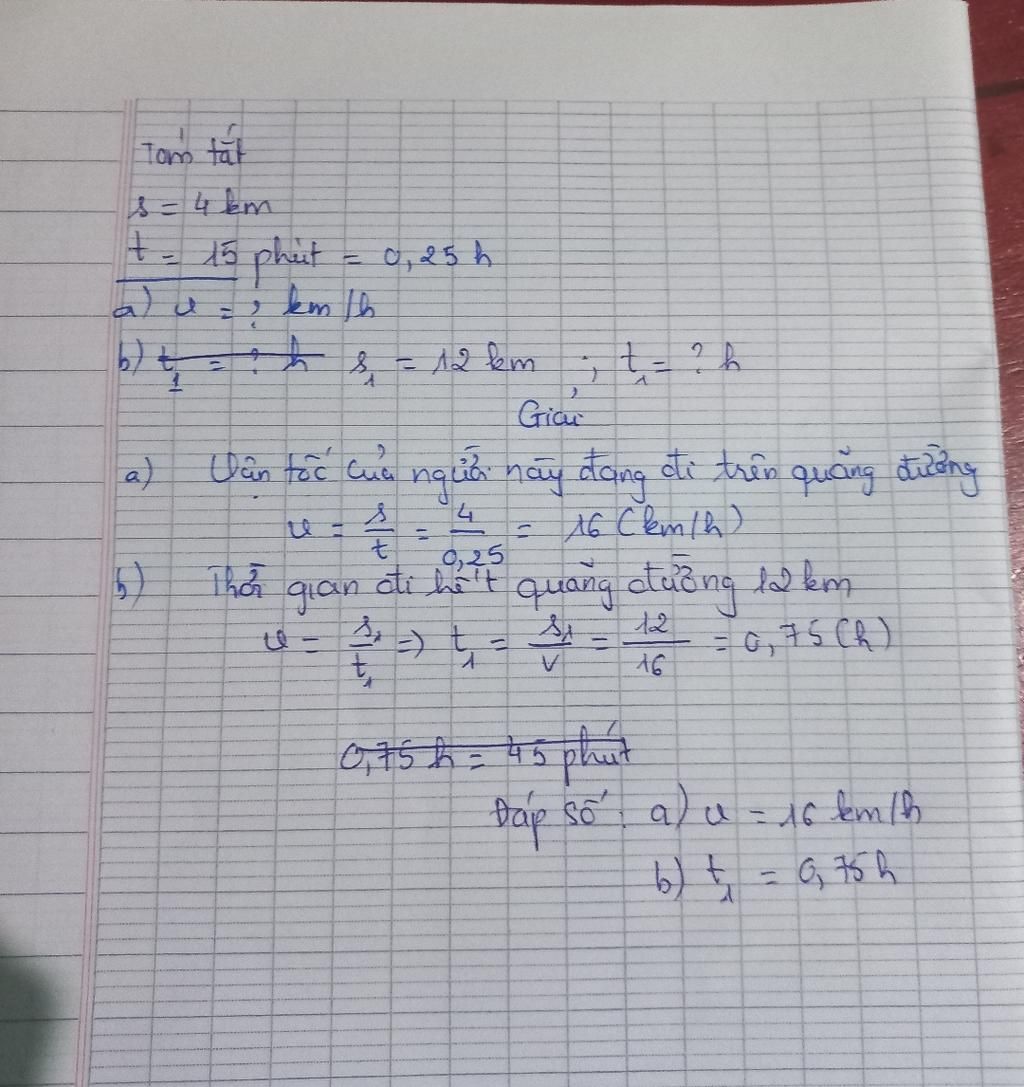 Tóm tắt
s = 4 km
t = 15 phút = 0,25 h
a) v = ? km/h
b) t₁ = ? h s₁ = 12 km ; t₁ = ? h
Giải
a) Vận tốc của người này đang đi trên quãng đường
v = s/t = 4/0,25 = 16 (km/h)
b) Thời gian đi hết quãng đường 12 km
v = s₁/t₁ => t₁ = s₁/v = 12/16 = 0,75 (h)
0,75 h = 45 phút
Đáp số : a) v = 16 km/h
b) t₁ = 0,75 h